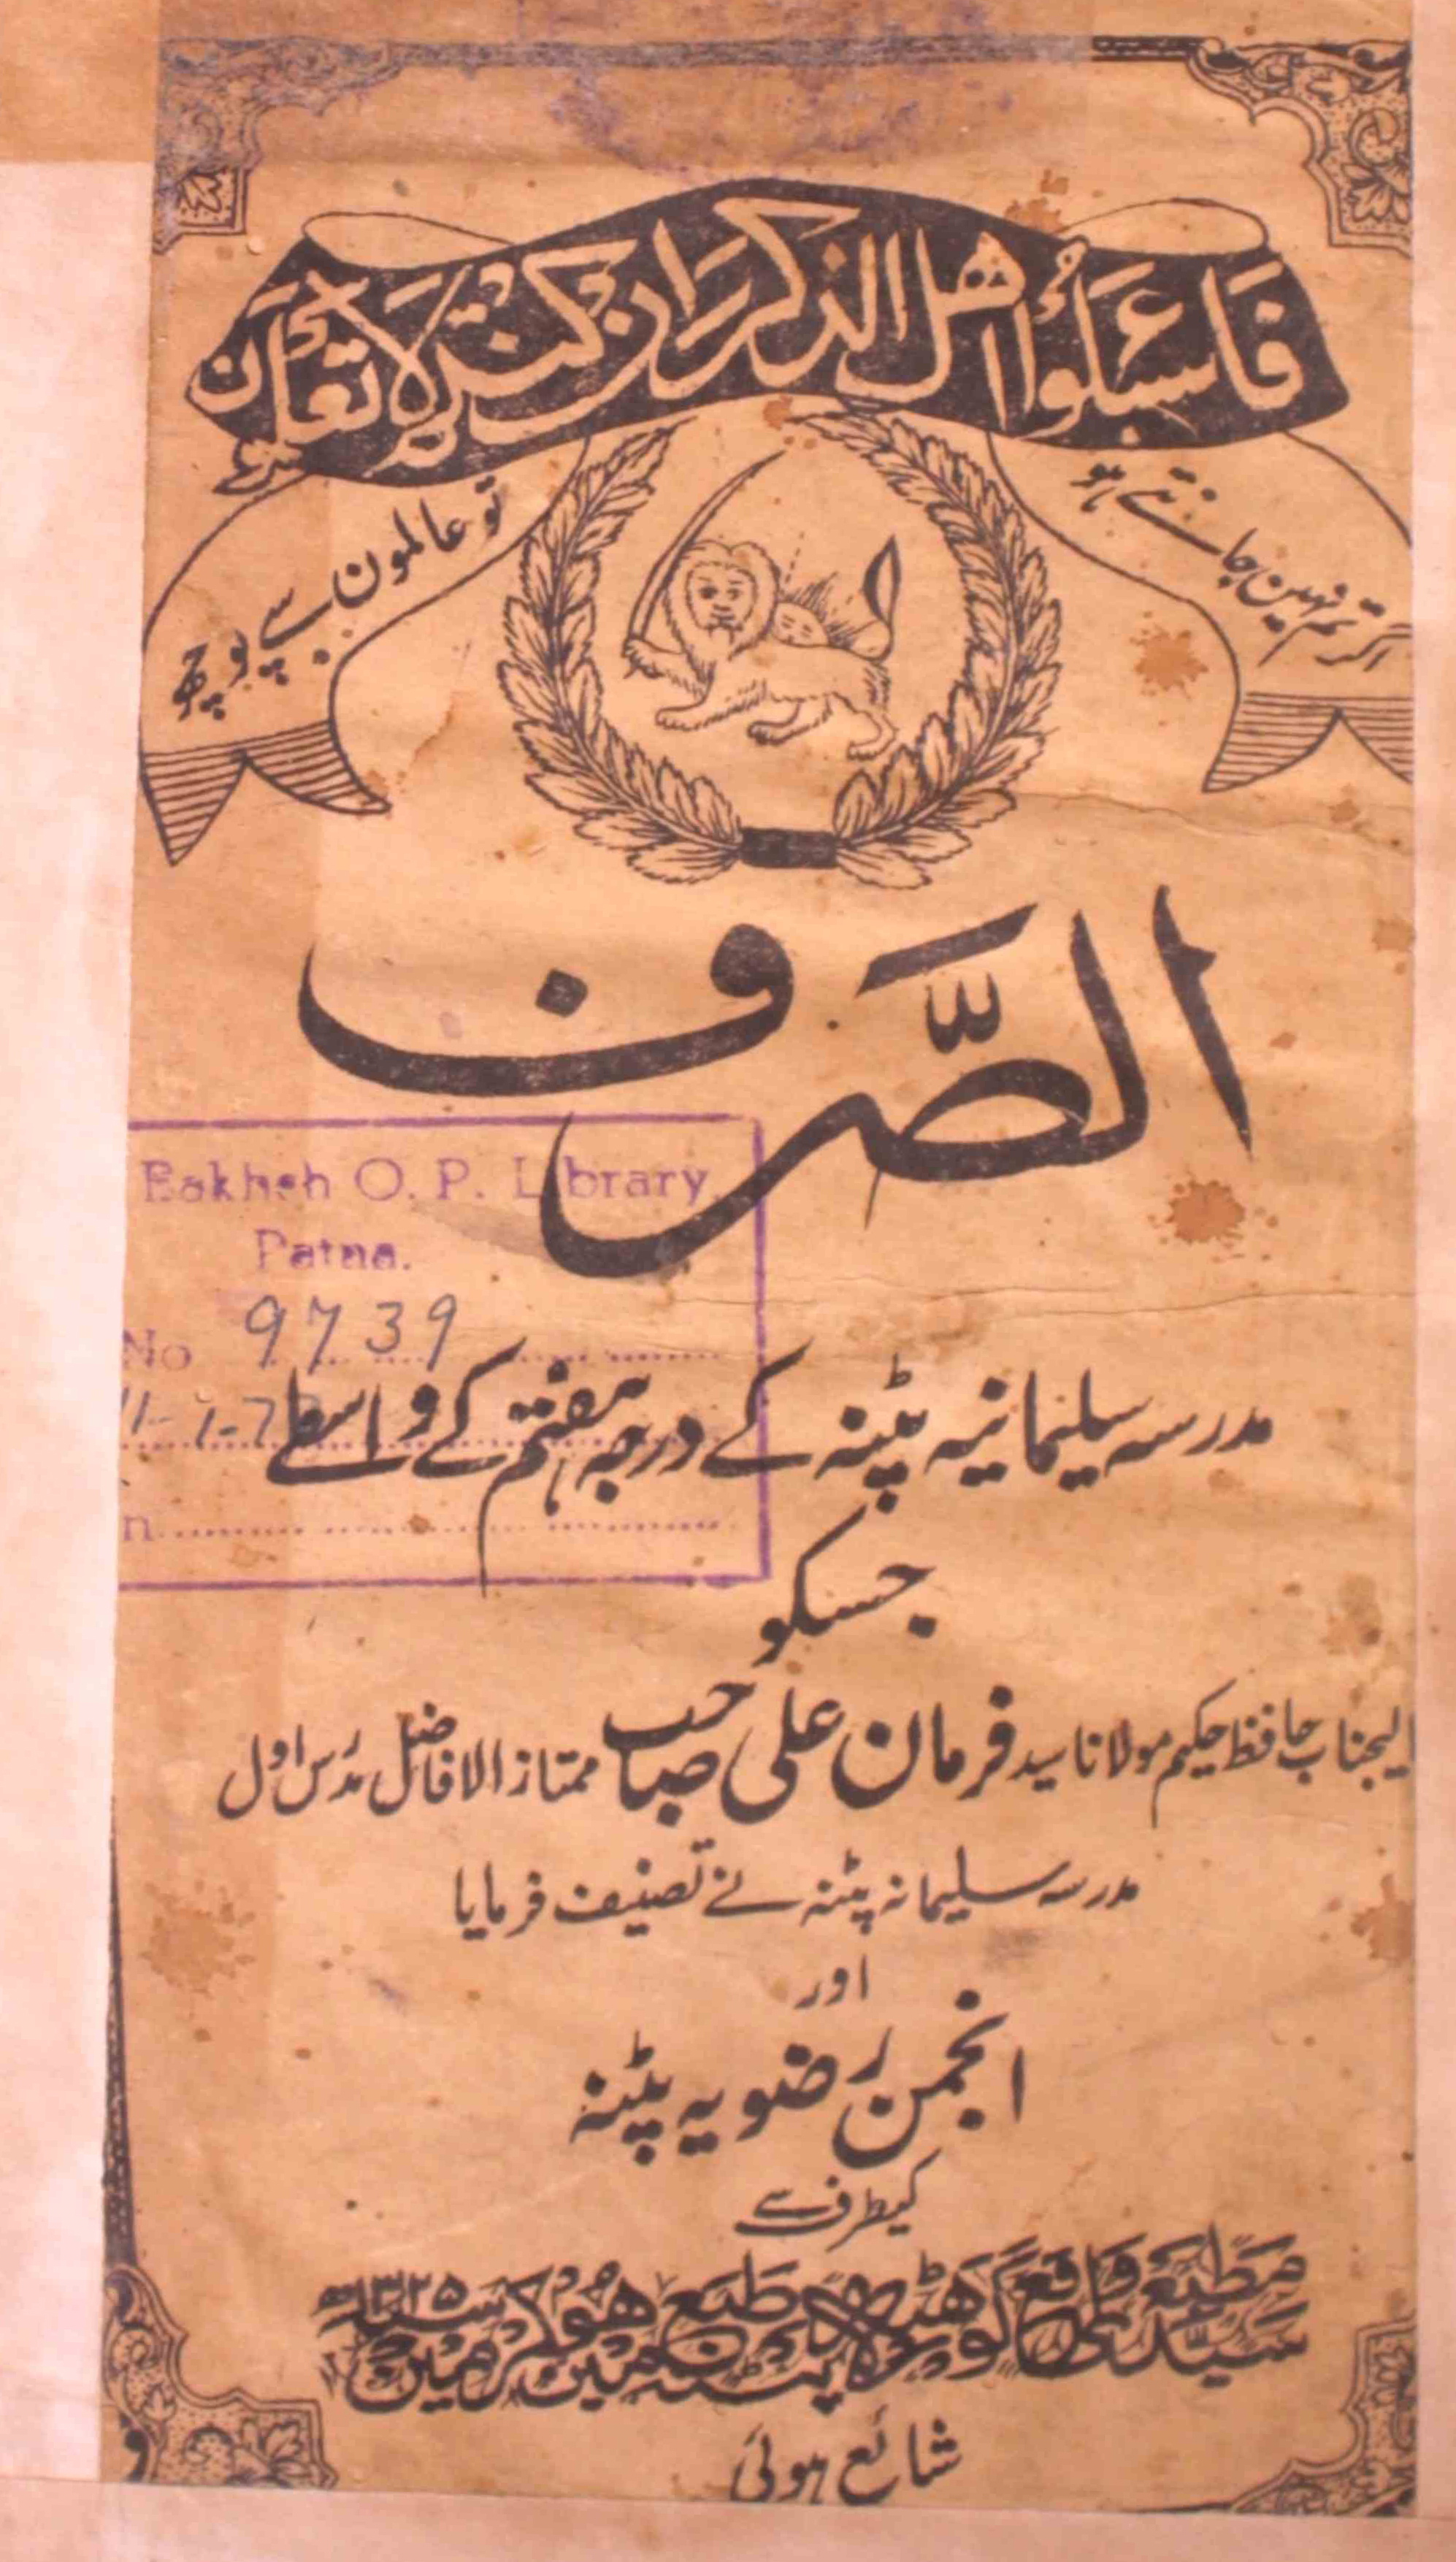 فَاسْئَلُوْا اهل الذکر ان کنتم لَا تعلمون
اگر تم نہین جانتے ہو
تو عالمون سے پوچھو
الصَّرف
Bakhsh O. P. Library,
Patna.
No 9739
11-7-7
مدرسہ سلیمانیہ پٹنہ کے درجہ ہفتم کے واسطے
جسکو
الیجناب حافظ حکیم مولانا سید فرمان علی صاحب ممتاز الافاضل مدرس اول
مدرسہ سلیمانہ پٹنہ نے تصنیف فرمایا
اور
انجمن رضویہ پٹنہ
کیطرف سے
مطبع سیدی واقع گوهٹہ پٹنہ مین طبع هوکر سنہ ۱۳۲۵ھ مین
شائع ہوئی